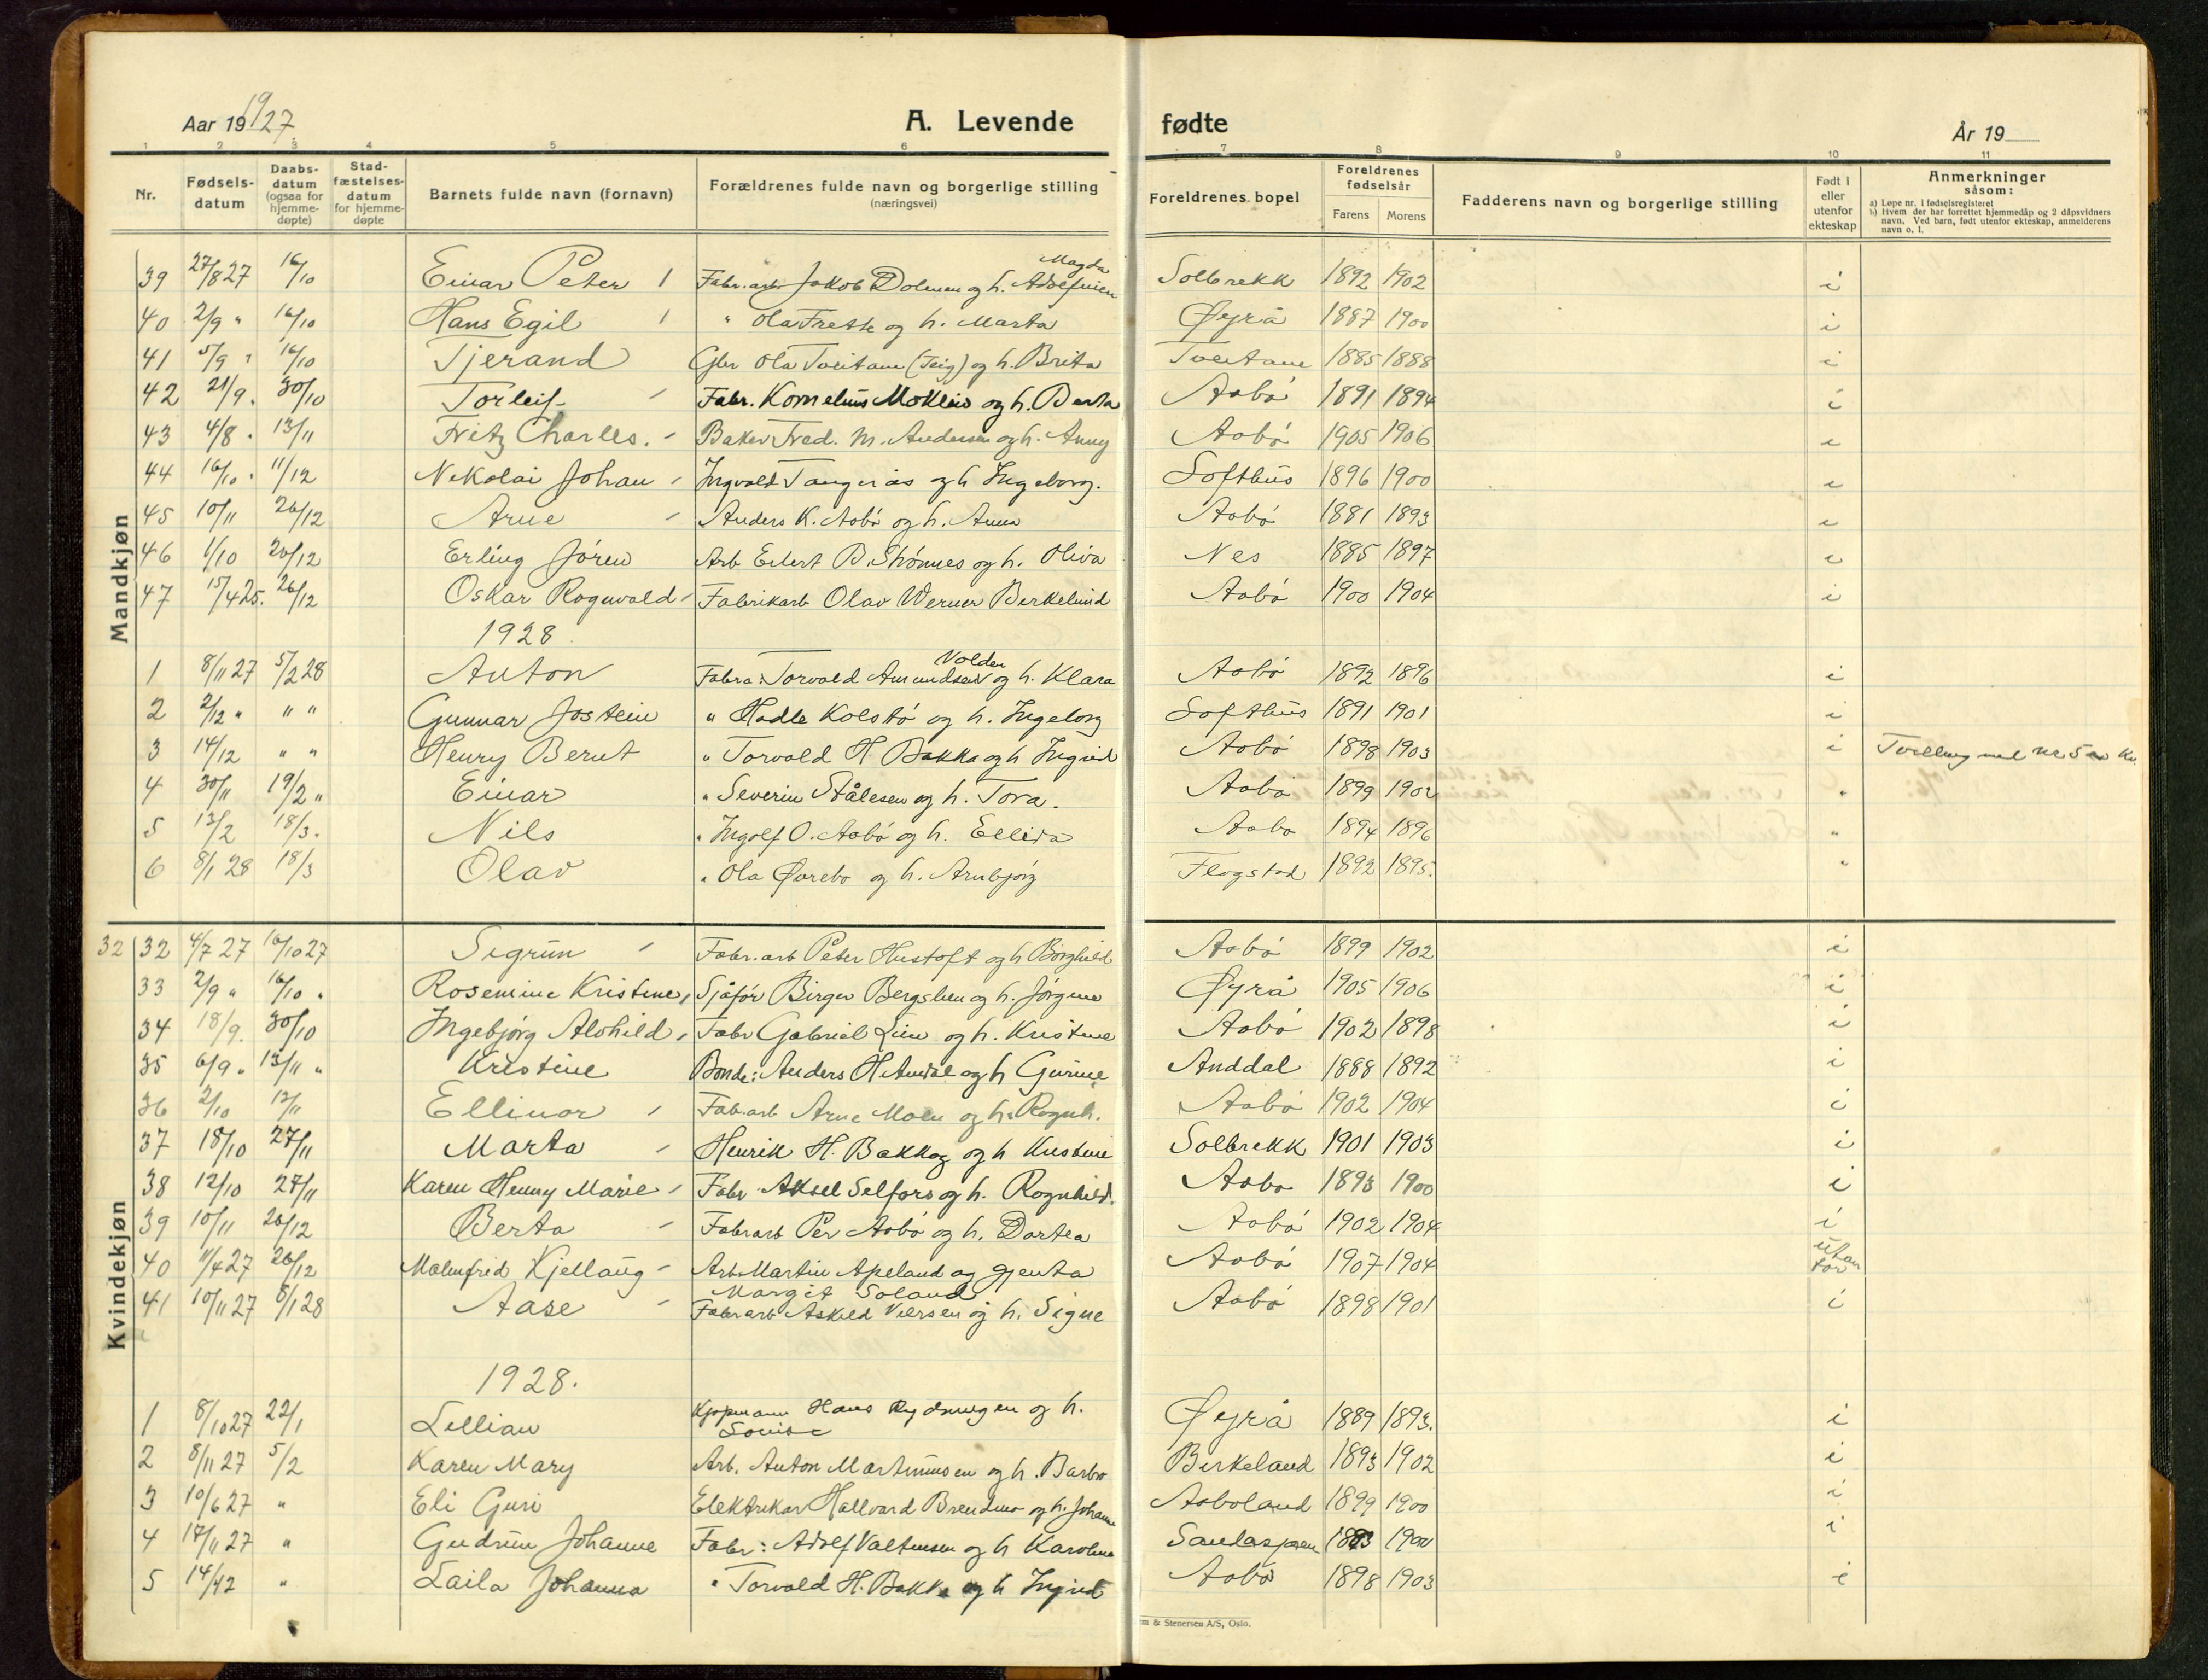 Aar 19 1927
A. Levende fødte
År 19
1 2 3 4 5 6 7 8 9 10 11
Nr. | Fødsels-datum | Daabs-datum (ogsaa for hjemme-døpte) | Stad-fæstelses-datum for hjemme-døpte | Barnets fulde navn (fornavn) | Forældrenes fulde navn og borgerlige stilling (næringsvei) | Foreldrenes bopel | Foreldrenes fødselsår Farens Morens | Fadderens navn og borgerlige stilling | Født i eller utenfor ekteskap | Anmerkninger såsom: a) Løpe nr. i fødselsregisteret b) Hvem der har forrettet hjemmedåp og 2 dåpsvidners navn. Ved barn, født utenfor ekteskap, anmelderens navn o. l.
Mandkjøn
39 27/8 27 16/10 Einar Peter Fabr.arb Jakob Dolmen og h. Magda Solbrekk 1892 1902 i
40 2/9 " 16/10 Hans Egil " Ola Frette og h. Marta Øyrå 1887 1900 i
41 5/9 " 16/10 Tjerand Gbr Ola Tveitane (Teig) og h. Brita Tveitane 1885 1888 i
42 21/9 . 30/10 Torleif Fabr. Kornelius Mokleiv og h. Berta Aabø 1891 1894 i
43 4/8 . 13/11 Fritz Charles. Baker Fred. M. Andersen og h. Anny Aabø 1905 1906 i
44 16/10 . 11/12 Nikolai Johan Ingvald Tangerås og h Ingeborg. Softhus 1896 1900 i
45 10/11 26/12 Arne Anders K. Aabø og h. Anna Aabø 1881 1893 i
46 1/10 26/12 Erling Søren Arb Eilert B. Strømnes og h. Oliva Nes 1885 1897 i
47 15/4 25. 26/12 Oskar Rognvald Fabrikarb Olav Werner Aabø 1900 1904 i
1928
1 8/11 27 5/2 28 Anton Fabra: Torvald Amundsen Volden og h. Klara Aabø 1892 1896 i
2 2/12 " " " Gunnar Jostein " Hadle Kolstø og h. Ingeborg Softhus 1891 1901 i
3 14/12 " " Henry Bernt " Torvald H. Bakka og h Ingrid Aabø 1898 1903 i Tvelling med nr 5 Kv.
4 30/11 19/2 " Einar " Severin Stålesen og h. Tora. Aabø 1899 1902 "
5 13/2 18/3. Nils " Ingolf O. Aabø og h. Ellida Aabø 1894 1896 "
6 8/1 28 18/3 Olav " Ola Øvrebø og h. Arnbjørg Flogstad 1892 1895. "
Kvindekjøn
32 32 4/7 27 16/10 27 Sigrun Fabr.arb Peter Hustoft og h Borghild Aabø 1899 1902 i
33 2/9 " 16/10 " Rosemine Kristine, Sjåfør Birger Bergsben og h. Jørgine Øyrå 1905 1906 i
34 18/9. 30/10 Ingebjørg Alvhild, Fabr Gabriel Lien og h. Kristine Aabø 1902 1898 i
35 6/9 " 13/11 " Kristine Bonde: Anders H Amdal og h Gurine Anddal 1888 1892 i
36 2/10 13/11 Ellinor Fab.arb Arne Moen og h. Rognh. Aabø 1902 1904 i
37 18/10 27/11 Marta Henrik H. Bakka og h Kristine Solbrekk 1901 1903 i
38 12/10 27/11 Karen Henny Marie Fabr Aksel Selfors og h. Rognhild. Aabø 1893 1900 i
39 10/11 26/12 Berta Fabrarb Per Aabø og h. Dortea Aabø 1902 1904 i
40 11/4 27 26/12 Malmfrid Kjellaug Arb. Martin Apeland og gjenta Aabø 1907 1904 utan for
Margit Soland
41 10/11 27 8/1 28 Aase Fabrarb Askild Versen og h. Signe Aabø 1898 1901 i
1928.
1 8/10 27 22/1 Lillian Kjøpmann Hans Rydningen og h. Øyrå 1889 1893. i
Louise
2 8/11 27 5/2 Karen Mary Arb. Anton Martinusen og h. Barbro Birkeland 1893 1902 i
3 10/6 27 " Eli Guri Elektrikar Hallvard og h. Johanne Aaboland 1899 1900 i
4 17/11 27 " Gudrun Johanne Fabr: Adolf Valtinsen og h Karoline 1893 1900 i
5 14/12 " Laila Johanna " Torvald H. Bakka og h Ingrid Aabø 1898 1903 i
em & Stenersen A/S, Oslo.